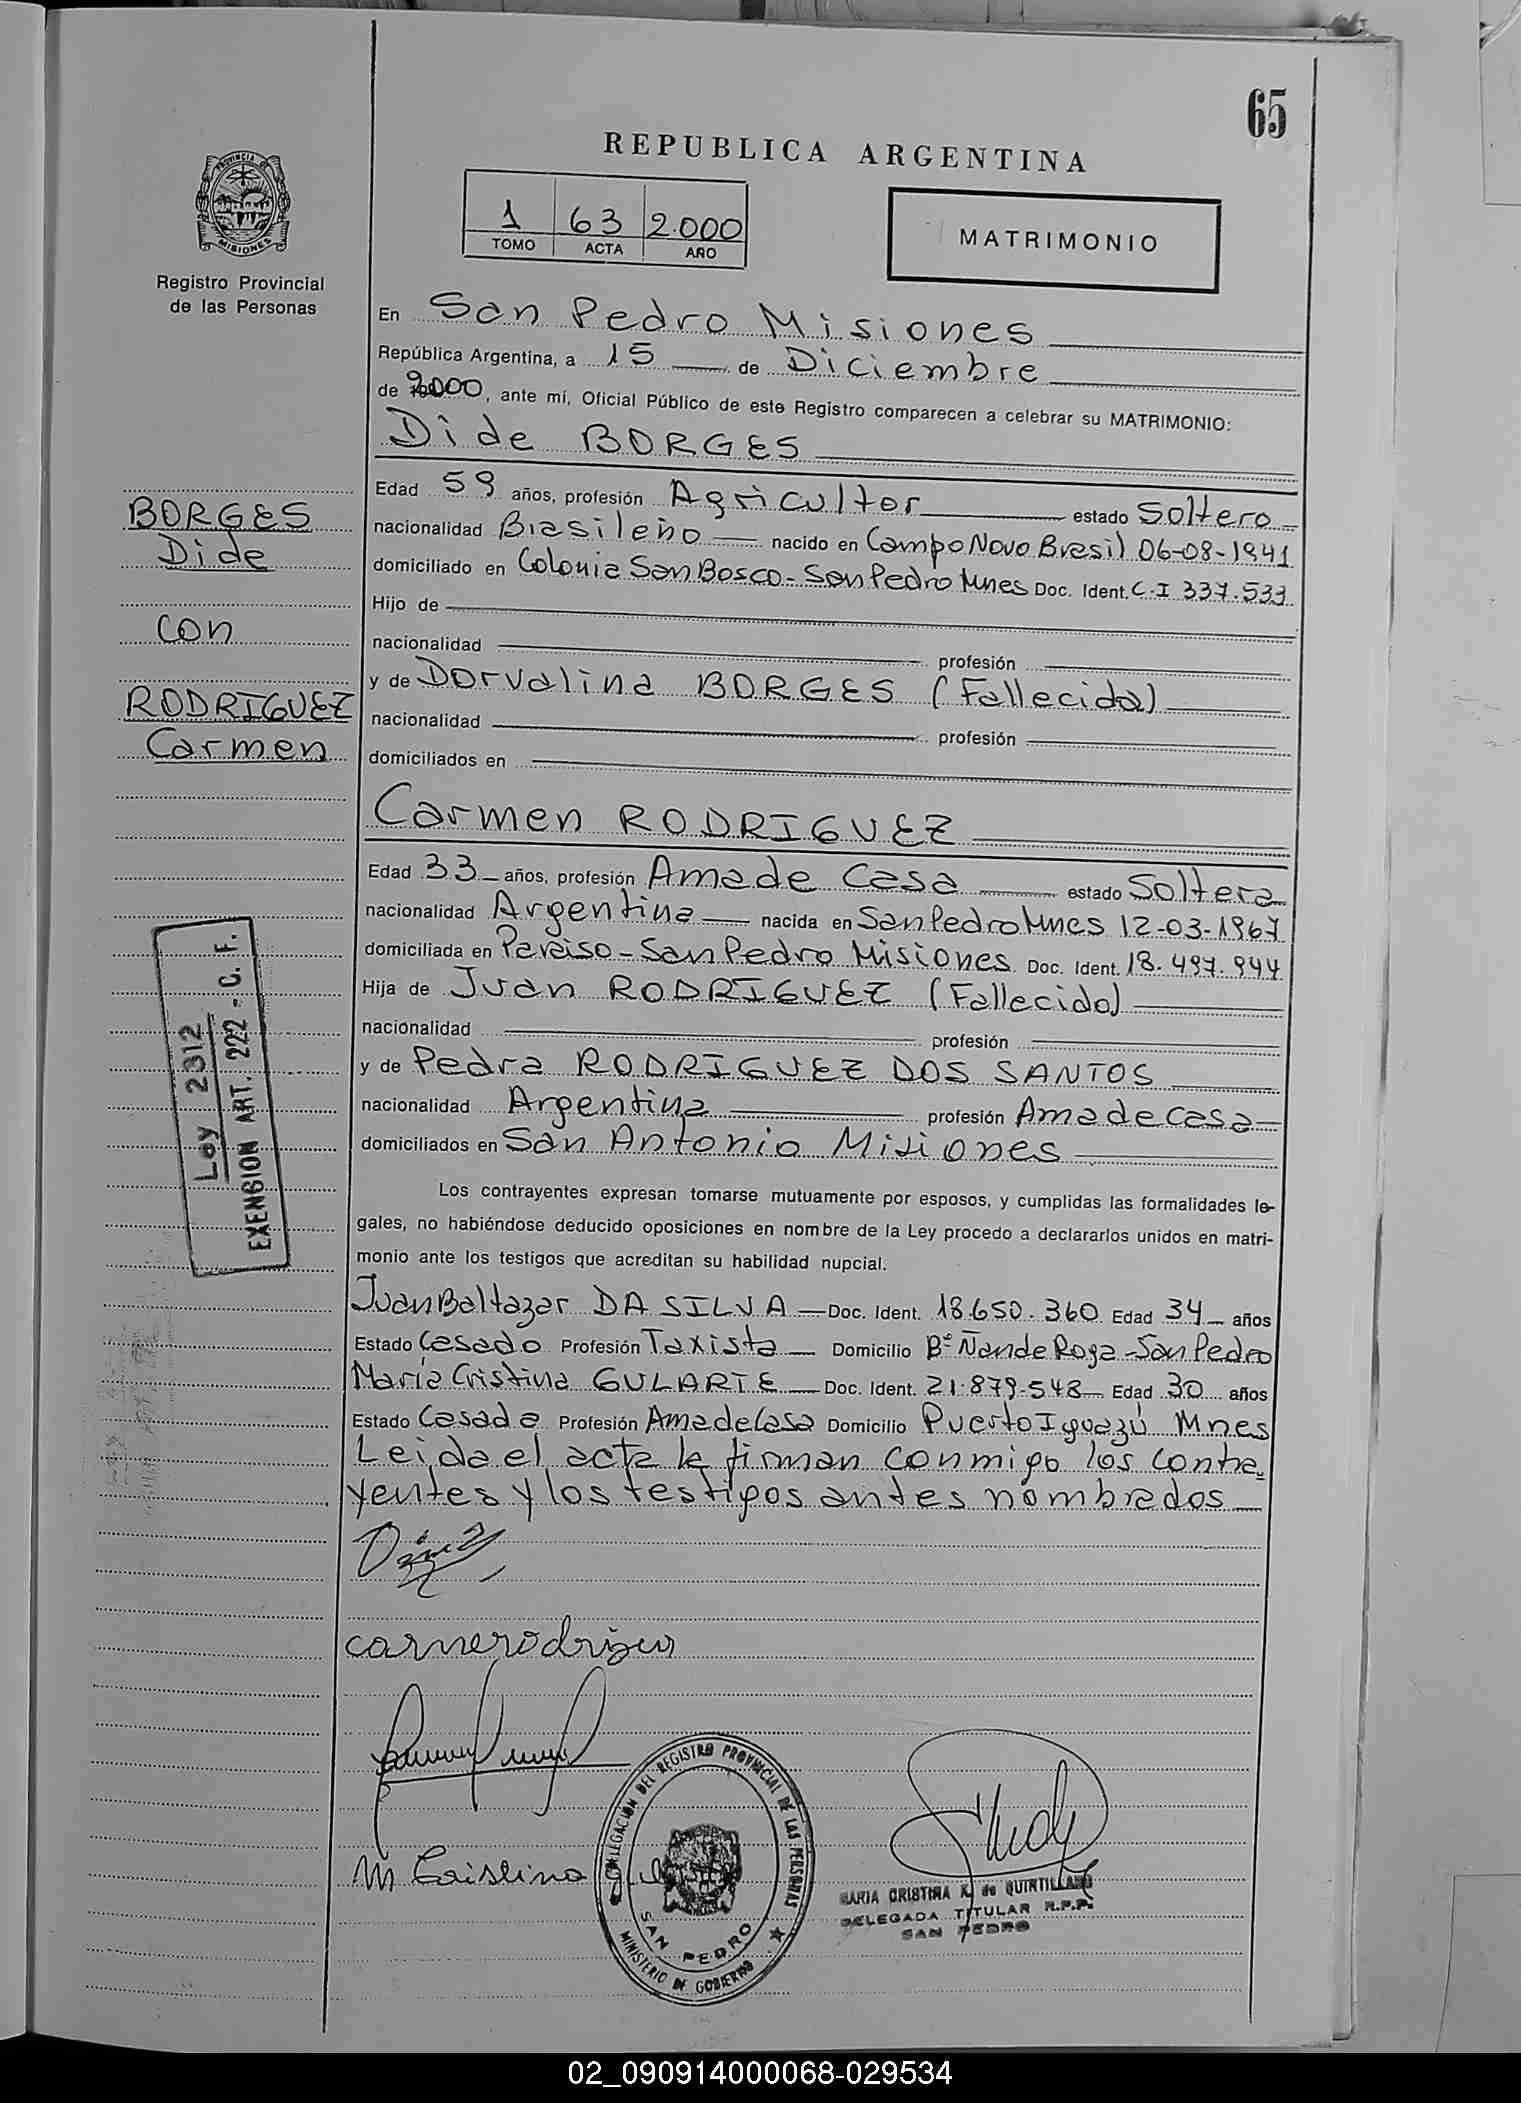 65
REPUBLICA ARGENTINA
PROVINCIA DE MISIONES
Registro Provincial
de las Personas
1 63 2.000
TOMO ACTA AÑO
MATRIMONIO
En San Pedro Misiones
República Argentina, a 15 de Diciembre
de 2000, ante mí, Oficial Público de este Registro comparecen a celebrar su MATRIMONIO:
Dide BORGES
Edad 59 años, profesión Agricultor estado Soltero
nacionalidad Brasileño nacido en Campo Novo Brasil 06-08-1941
domiciliado en Colonia San Bosco - San Pedro Mnes Doc. Ident. C.I 337.533
Hijo de
nacionalidad profesión
y de Dorvalina BORGES (Fallecida)
nacionalidad profesión
domiciliados en
BORGES
Dide
con
RODRIGUEZ
Carmen
Carmen RODRIGUEZ
Edad 33 años, profesión Ama de Casa estado Soltera
nacionalidad Argentina nacida en San Pedro Mnes 12-03-1967
domiciliada en Paraiso - San Pedro Misiones Doc. Ident. 18.497.944
Hija de Juan RODRIGUEZ (Fallecido)
nacionalidad profesión
y de Pedra RODRIGUEZ DOS SANTOS
nacionalidad Argentina profesión Ama de casa
domiciliados en San Antonio Misiones
Ley 2312
EXENSION ART. 222 - C. F.
Los contrayentes expresan tomarse mutuamente por esposos, y cumplidas las formalidades le-
gales, no habiéndose deducido oposiciones en nombre de la Ley procedo a declararlos unidos en matri-
monio ante los testigos que acreditan su habilidad nupcial.
Juan Baltazar DA SILVA Doc. Ident. 18.650.360 Edad 34 años
Estado Casado Profesión Taxista Domicilio Bº Ñande Roga - San Pedro
María Cristina GULARTE Doc. Ident. 21.879.548 Edad 30 años
Estado Casada Profesión Ama de Casa Domicilio Puerto Iguazú Mnes
Leida el acta la firman conmigo los contra-
yentes y los testigos antes nombrados
carmerodrigues
M Cristina
DELEGACION DEL REGISTRO PROVINCIAL DE LAS PERSONAS
SAN PEDRO
MINISTERIO DE GOBIERNO
MARIA CRISTINA K. de QUINTILLANO
DELEGADA TITULAR R.P.P.
SAN PEDRO
02_090914000068-029534